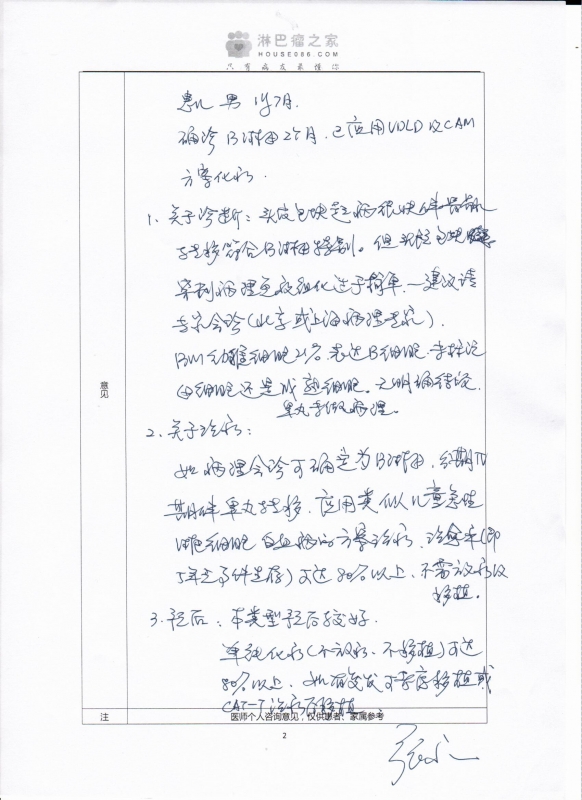 淋巴瘤之家
HOUSE086.COM
只有病友最懂你
患儿 男 1岁7月.
确诊B淋母2个月,已应用VDLD及CAM
方案化疗.
1. 关于诊断:头皮包块起病很快
转移符合B淋母特别。但头皮包块
穿刺病理免疫组化过于简单,一建议请
专家会诊(北京或上海病理专家).
BM幼稚细胞21% 表达B细胞,未标记
母细胞还是成熟细胞。无明确结论.
睾丸未做病理。
意见
2. 关于治疗:
如病理会诊可确定为B淋母,分期IV
期伴睾丸转移,应用类似儿童急性
淋巴细胞白血病的方案治疗,治愈率(即
5年无事件生存)可达80%以上,不需放疗及
移植。
3. 预后:本类型预后较好.
单纯化疗(不放疗、不移植)可达
80%以上,如有复发可考虑移植或
CAT-T治疗后移植
注 医师个人咨询意见,仅供患者、家属参考
2